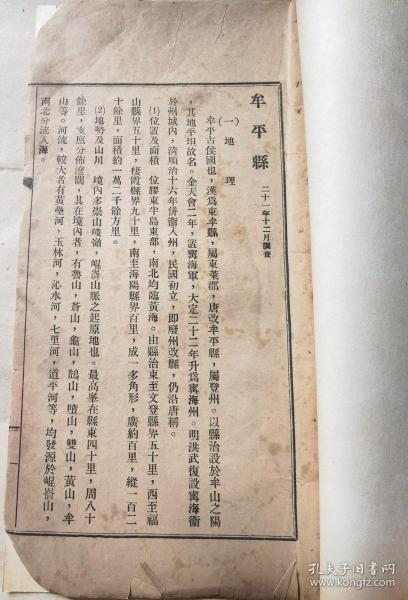 牟平縣 二十一年十二月調查
(一)地理
牟平古侯國也,漢爲東牟縣,屬東萊郡,唐改牟平縣,屬登州。以縣治設於牟山之陽
,其地平坦故名。金天會二年,置寗海軍,大定二十二年升爲寗海州。明洪武復設寗海衞
於州城內,清順治十六年併衞入州,民國初立,即廢州改縣,仍沿唐稱。
(1)位置及面積 位膠東半島東部,南北均臨黃海。由縣治東至文登縣界五十里,西至福
山縣界五十里,棲霞縣界九十里,南至海陽縣界百里,成一多角形,廣約百里,縱一百二
十餘里,面積約一萬二千餘方里。
(2)地勢及山川 境內多崇山峻嶺,崐嵛山脈之起原地也。最高峯在縣東四十里,周八十
餘里,支麻分佈遼闊,其在境內者,有魯山,峇山,龜山,鵲山,壇山,雙山,黃山,牟
山等。河流,較大者有黃壘河,玉林河,沁水河,七里河,道平河等,均發源於崐嵛山,
南北分流入海。
孔夫子旧书网
book.kongfz.com